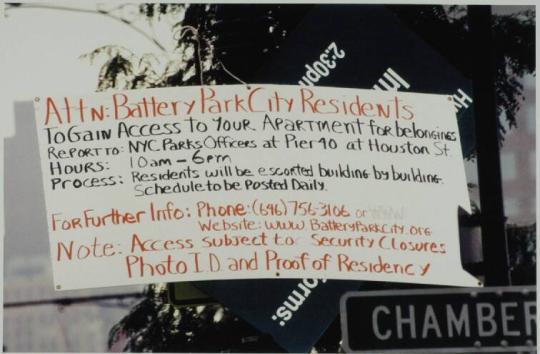 ATTN: BATTERY PARK CITY RESIDENTS
TO GAIN ACCESS TO YOUR APARTMENT for belongings
REPORT TO: NYC PARKS OFFICERS at PIER 40 at HOUSTON ST.
HOURS: 10am - 6pm
PROCESS: Residents will be escorted building by building.
Schedule to be Posted Daily.
FOR FURTHER INFO: Phone: (646) 756-3106 or
Website: WWW.BATTERYPARKCITY.ORG
NOTE: ACCESS SUBJECT TO SECURITY CLOSURES
PHOTO I.D. AND PROOF OF RESIDENCY
2:30pm
forms:
CHAMBER